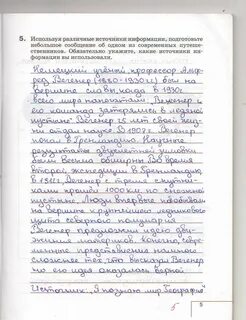 5. Используя различные источники информации, подготовьте
небольшое сообщение об одном из современных путеше-
ственников. Обязательно укажите, какие источники ин-
формации вы использовали.
Немецкий учёный профессор Альф-
ред Вегенер (1880-1930 гг) был на
вершине славы, когда в 1930 г.
всего мира напечатали: Вегенер с
его команды затерялись в ледяной
пустыне. Вегенер 25 лет своей жиз-
ни отдал науке. В 1907 г. Вегенер
попал в Гренландию. Научные
результаты двухлетней зимовки
были весьма обширны. Во время
второй экспедиции в Гренландию,
в 1912 г. Вегенер с тремя спутни-
ками прошёл 1000 км по снежной
пустыне. Люди впервые побывали
на вершине крупнейшего ледникового
щита северного полушария.
Вегенер предложил идею движ-
жения материков. Конечно, современные
представления намного
сложнее тех что высказал Вегенер
но его идея оказалась верной
Источник: "Я познаю мир. География"
5
5